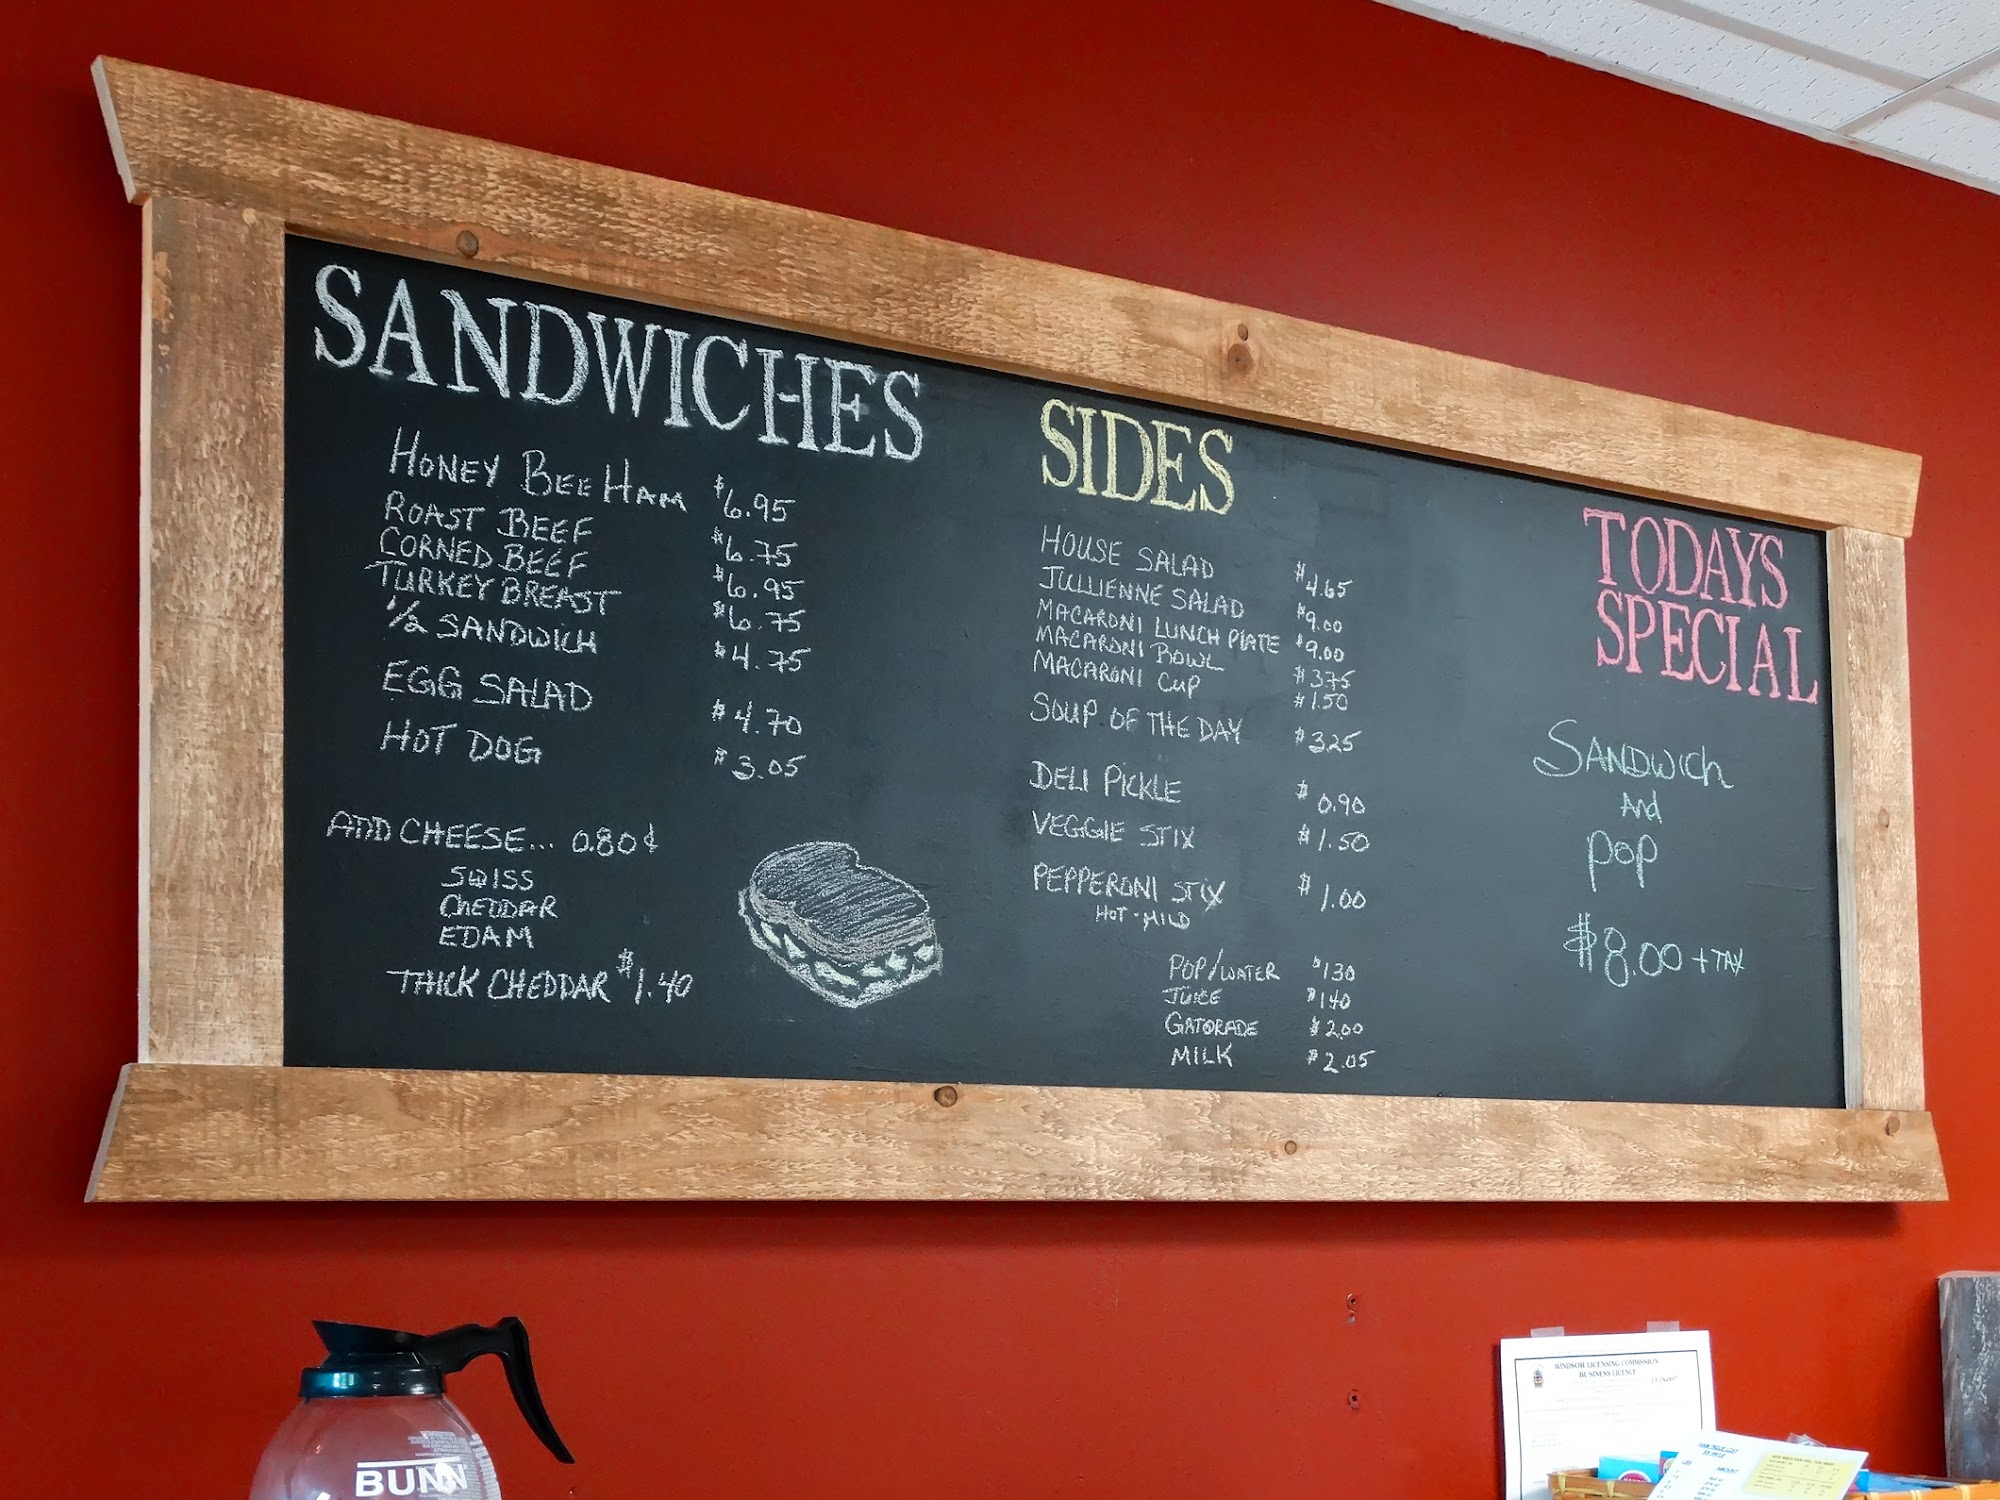 SANDWICHES
HONEY BEE HAM $6.95
ROAST BEEF $6.75
CORNED BEEF $6.95
TURKEY BREAST $6.75
1/2 SANDWICH $4.75
EGG SALAD $4.70
HOT DOG $3.05
ADD CHEESE... 0.80¢
SWISS
CHEDDAR
EDAM
THICK CHEDDAR $1.40
SIDES
HOUSE SALAD $4.65
JULLIENNE SALAD $9.00
MACARONI LUNCH PLATE $9.00
MACARONI BOWL $3.75
MACARONI CUP $1.50
SOUP OF THE DAY $3.25
DELI PICKLE $0.90
VEGGIE STIX $1.50
PEPPERONI STIX $1.00
HOT - MILD
POP/WATER $1.30
JUICE $1.40
GATORADE $2.00
MILK $2.05
TODAYS
SPECIAL
SANDWICH
AND
POP
$8.00 + TAX
BUNN
WINDSOR LICENSING COMMISSION
BUSINESS LICENCE
AMOUNT